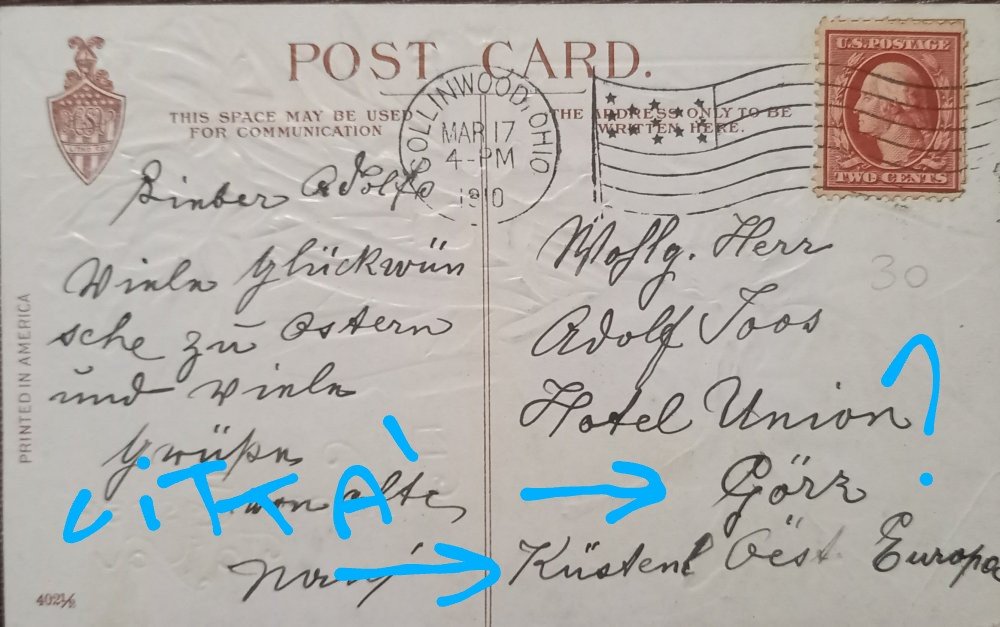 POST CARD.
THIS SPACE MAY BE USED
FOR COMMUNICATION
THE ADDRESS ONLY TO BE
WRITTEN HERE.
COLLINWOOD, OHIO
MAR 17
4-PM
1910
U.S. POSTAGE
TWO CENTS
30
PRINTED IN AMERICA
Lieber Adolf
Viele Glückwün
sche zu Ostern
und viele
Grüße
von alte
Wohlg. Herr
Adolf Joos
Hotel Union
Görz
Küstenl Oest. Europa
CITTÀ
?
402½